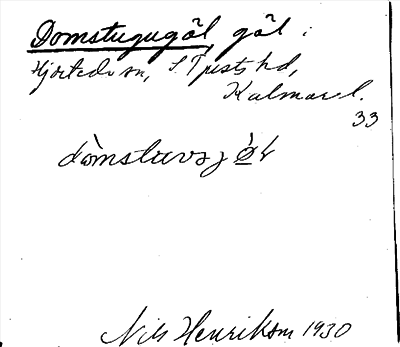 Domstugugöl, göl i
Hjorteds sn, S. Tjusts hd,
Kalmar l.
33
dòmstuvsjö̀l
Nils Henrikson 1930